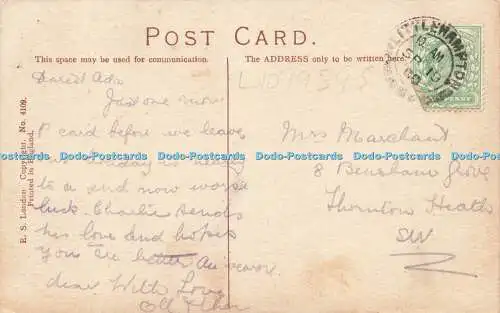 POST CARD.
This space may be used for communication.
The ADDRESS only to be written here.
LITTLEHAMPTON
Dearest Ada
Just one more
P card before we leave
our holiday is nearly
to a end now worse
luck. Charlie sends
his love and hopes
you are better
dear With Love
Mrs Marchant
8 Bensham Grove
Thornton Heath
SW
E. S. London Copyright. No. 4109.
Printed in England.
Dodo-Postcards Dodo-Postcards Dodo-Postcards Dodo-Postcards Dodo-Postcards Dodo-Postcards
Dodo-Postcards Dodo-Postcards Dodo-Postcards Dodo-Postcards Dodo-Postcards Dodo-Postcards